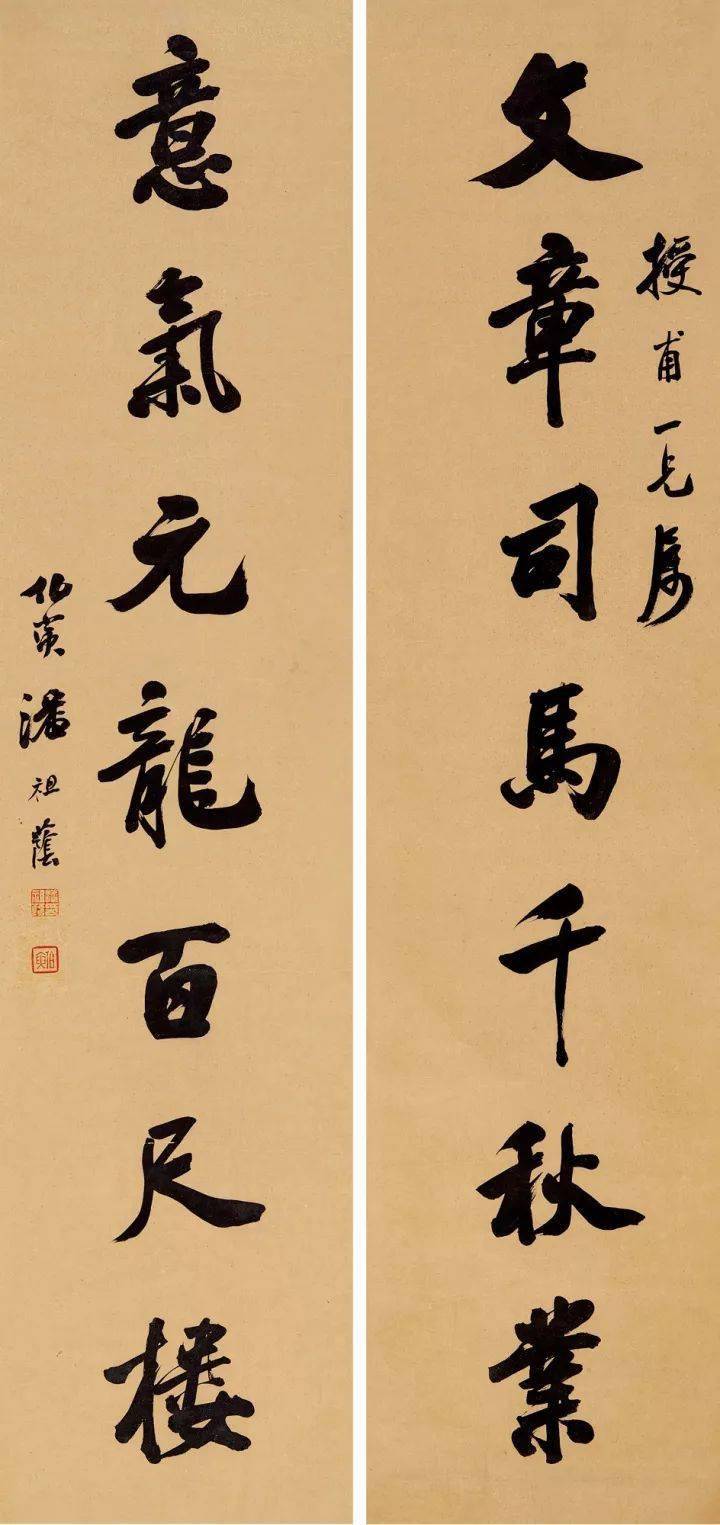 文章司馬千秋業
授甫一兄屬
意氣元龍百尺樓
伯寅潘祖蔭
伯寅